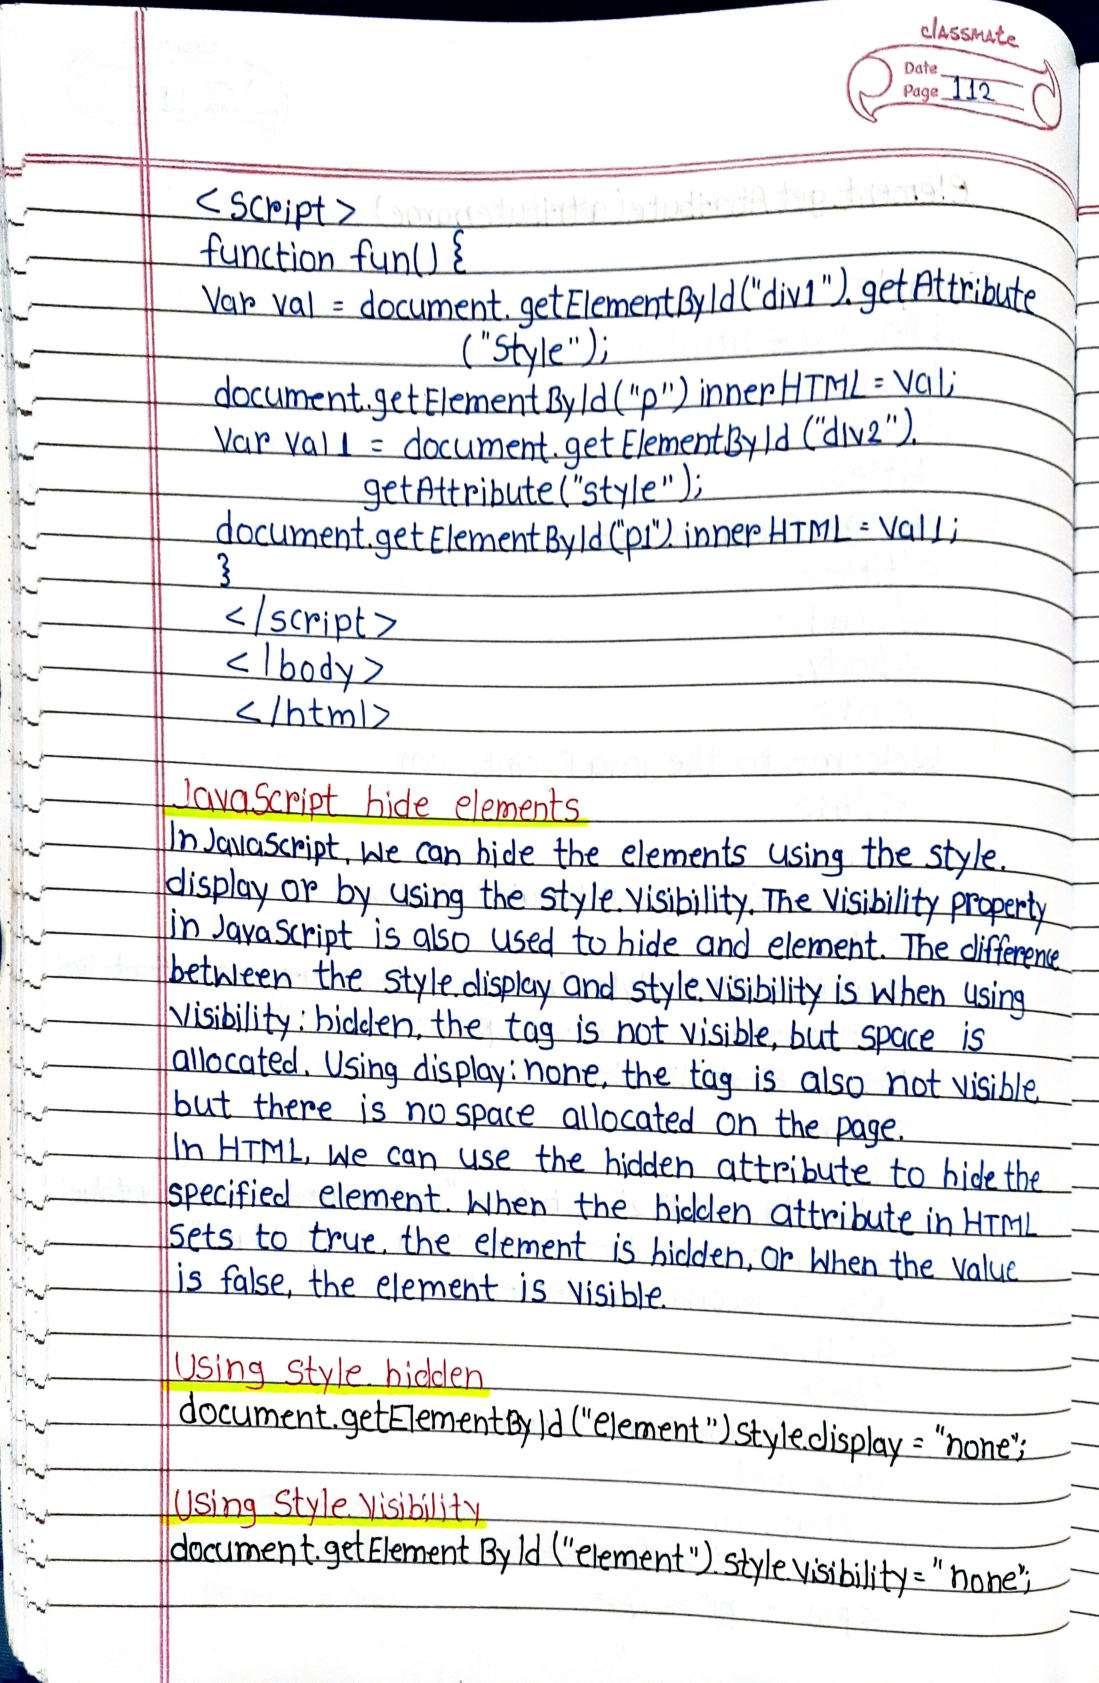 classmate
Date
Page 112
<script>
function fun() {
Var val = document.getElementById("div1").getAttribute
("Style");
document.getElementById("p") innerHTML = Val;
Var val1 = document.getElementById ("div2").
getAttribute("style");
document.getElementById("p1").innerHTML = Val1;
}
</script>
</body>
</html>
JavaScript hide elements
In JavaScript, We can hide the elements using the style.
display or by using the style.Visibility. The Visibility property
in JavaScript is also used to hide and element. The difference
between the style.display and style.visibility is When using
Visibility: hidden, the tag is not visible, but space is
allocated. Using display: none, the tag is also not visible
but there is no space allocated on the page.
In HTML, We can use the hidden attribute to hide the
specified element. When the hidden attribute in HTML
sets to true, the element is hidden, or When the value
is false, the element is visible.
Using Style.hidden
document.getElementById("element")Style.display = "none";
Using Style.Visibility
document.getElementById ("element").style.visibility = "none";